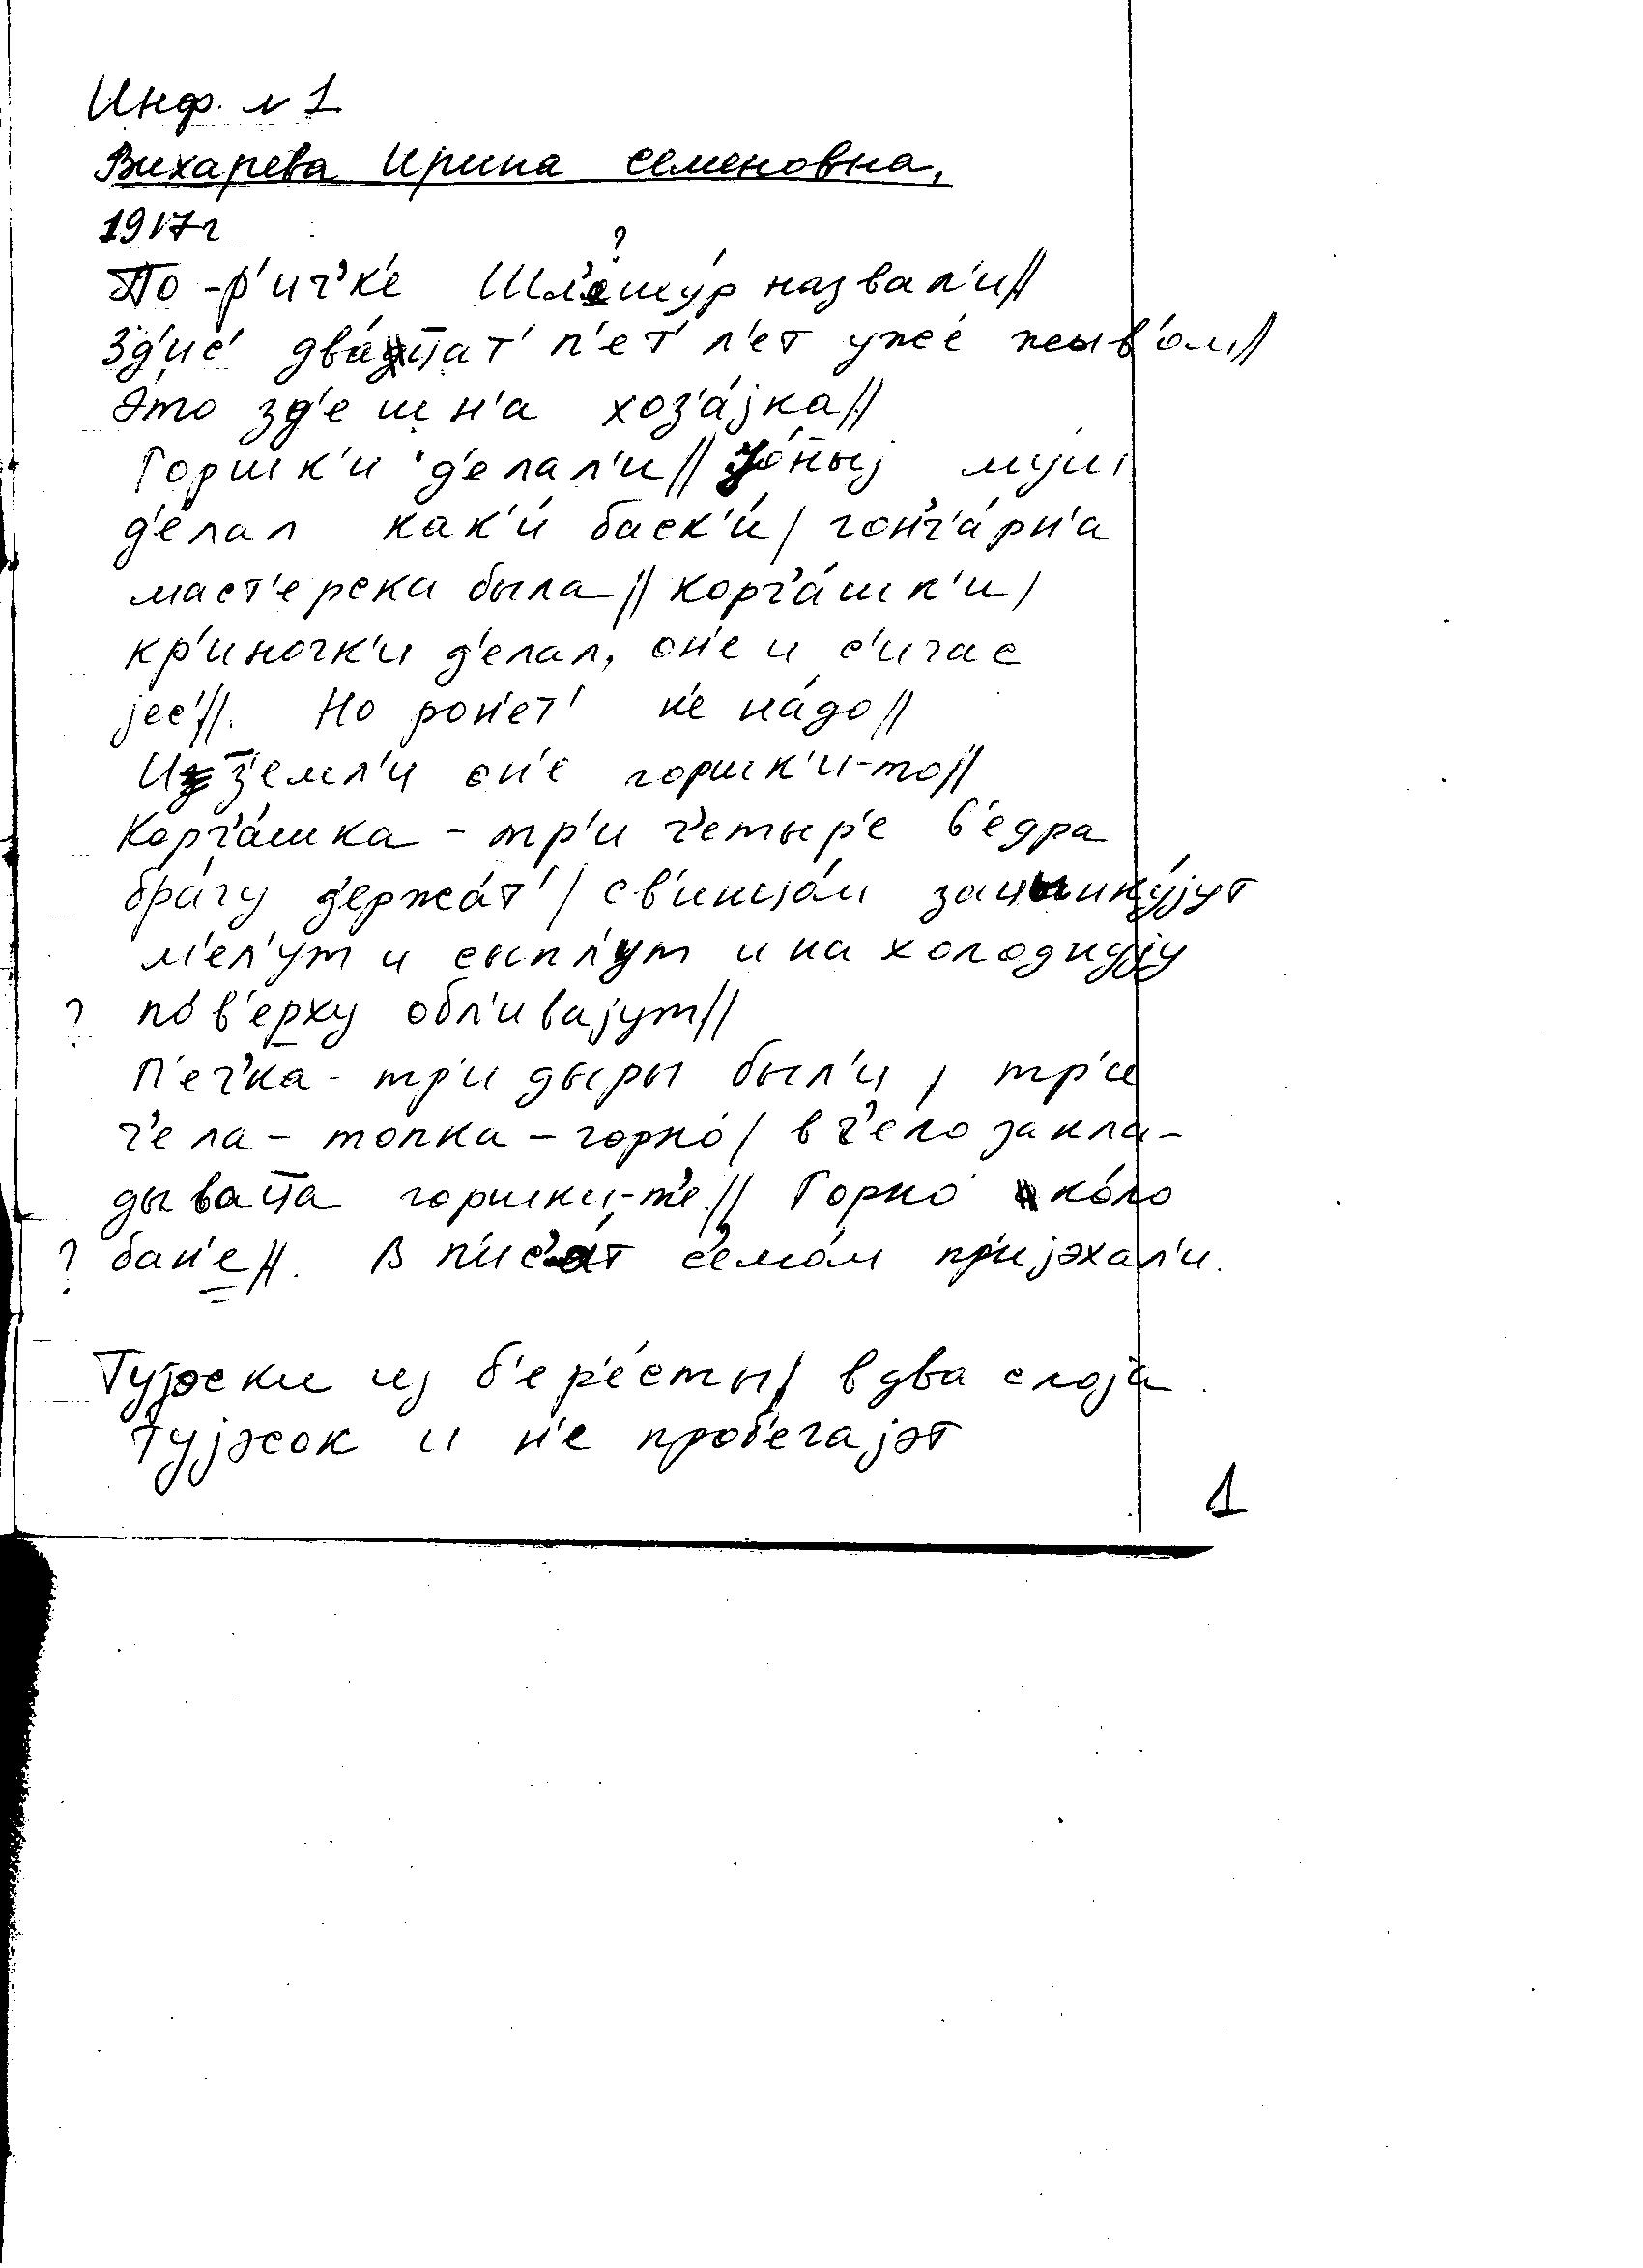 Инф. N 1
Вихарева Ирина Семеновна,
1917г
?
По-р'ич'к'е Шл'ешу́р назвал'и//
Зд'ис' два́цат' п'ет' л'ет уже́ жыв'ом//
Это зд'ешн'а хоз'а́јка//
Горшк'и д'елал'и// муш
д'е́лал как'и́ баск'и́/ гонч'а́рн'а
маст'ерска была// корч'а́шк'и/
кр'иночк'и д'елал, он'е и с'ичас
јес'//. Но рон'ет' н'е на́до//
Из з'емл'и он'е горшк'и-то//
Корч'а́шка - тр'и ч'етыр'е в'едра
бра́гу д'ержа́т'/ св'инцо́м зацынку́јут
м'ел'ут и сыпл'ут и на холодну́ју
? по́в'ерху обл'ивајут//
П'еч'ка - тр'и дыры был'и, тр'и
ч'ела - топка - горно́/ в ч'ело закла-
дываца горшки-т'е.// Горно́ ко́ло
? бан'е//. В п'ис'а́т с'емо́м пр'ијэхал'и.
Тујэски из б'ер'е́сты/ в два слоја.
Тујэсок и н'е проб'егајэт
1